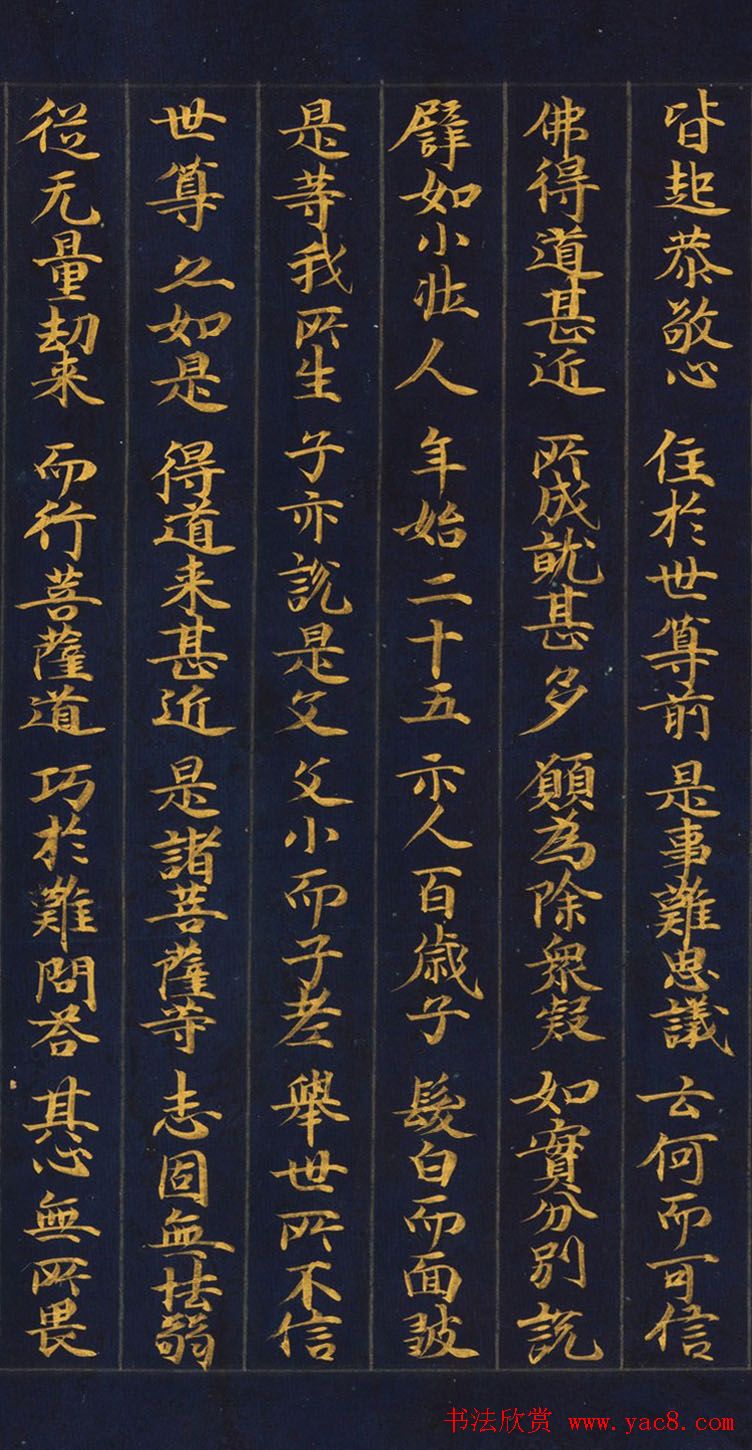 皆起恭敬心 住於世尊前 是事難思議 云何而可信
佛得道甚近 所成就甚多 願為除衆疑 如實分別説
譬如小壯人 年始二十五 示人百歲子 髮白而面皺
是等我所生 子亦説是父 父小而子老 舉世所不信
世尊亦如是 得道来甚近 是諸菩薩等 志固無怯弱
從无量劫来 而行菩薩道 巧於難問答 其心無所畏
书法欣赏 www.yac8.com